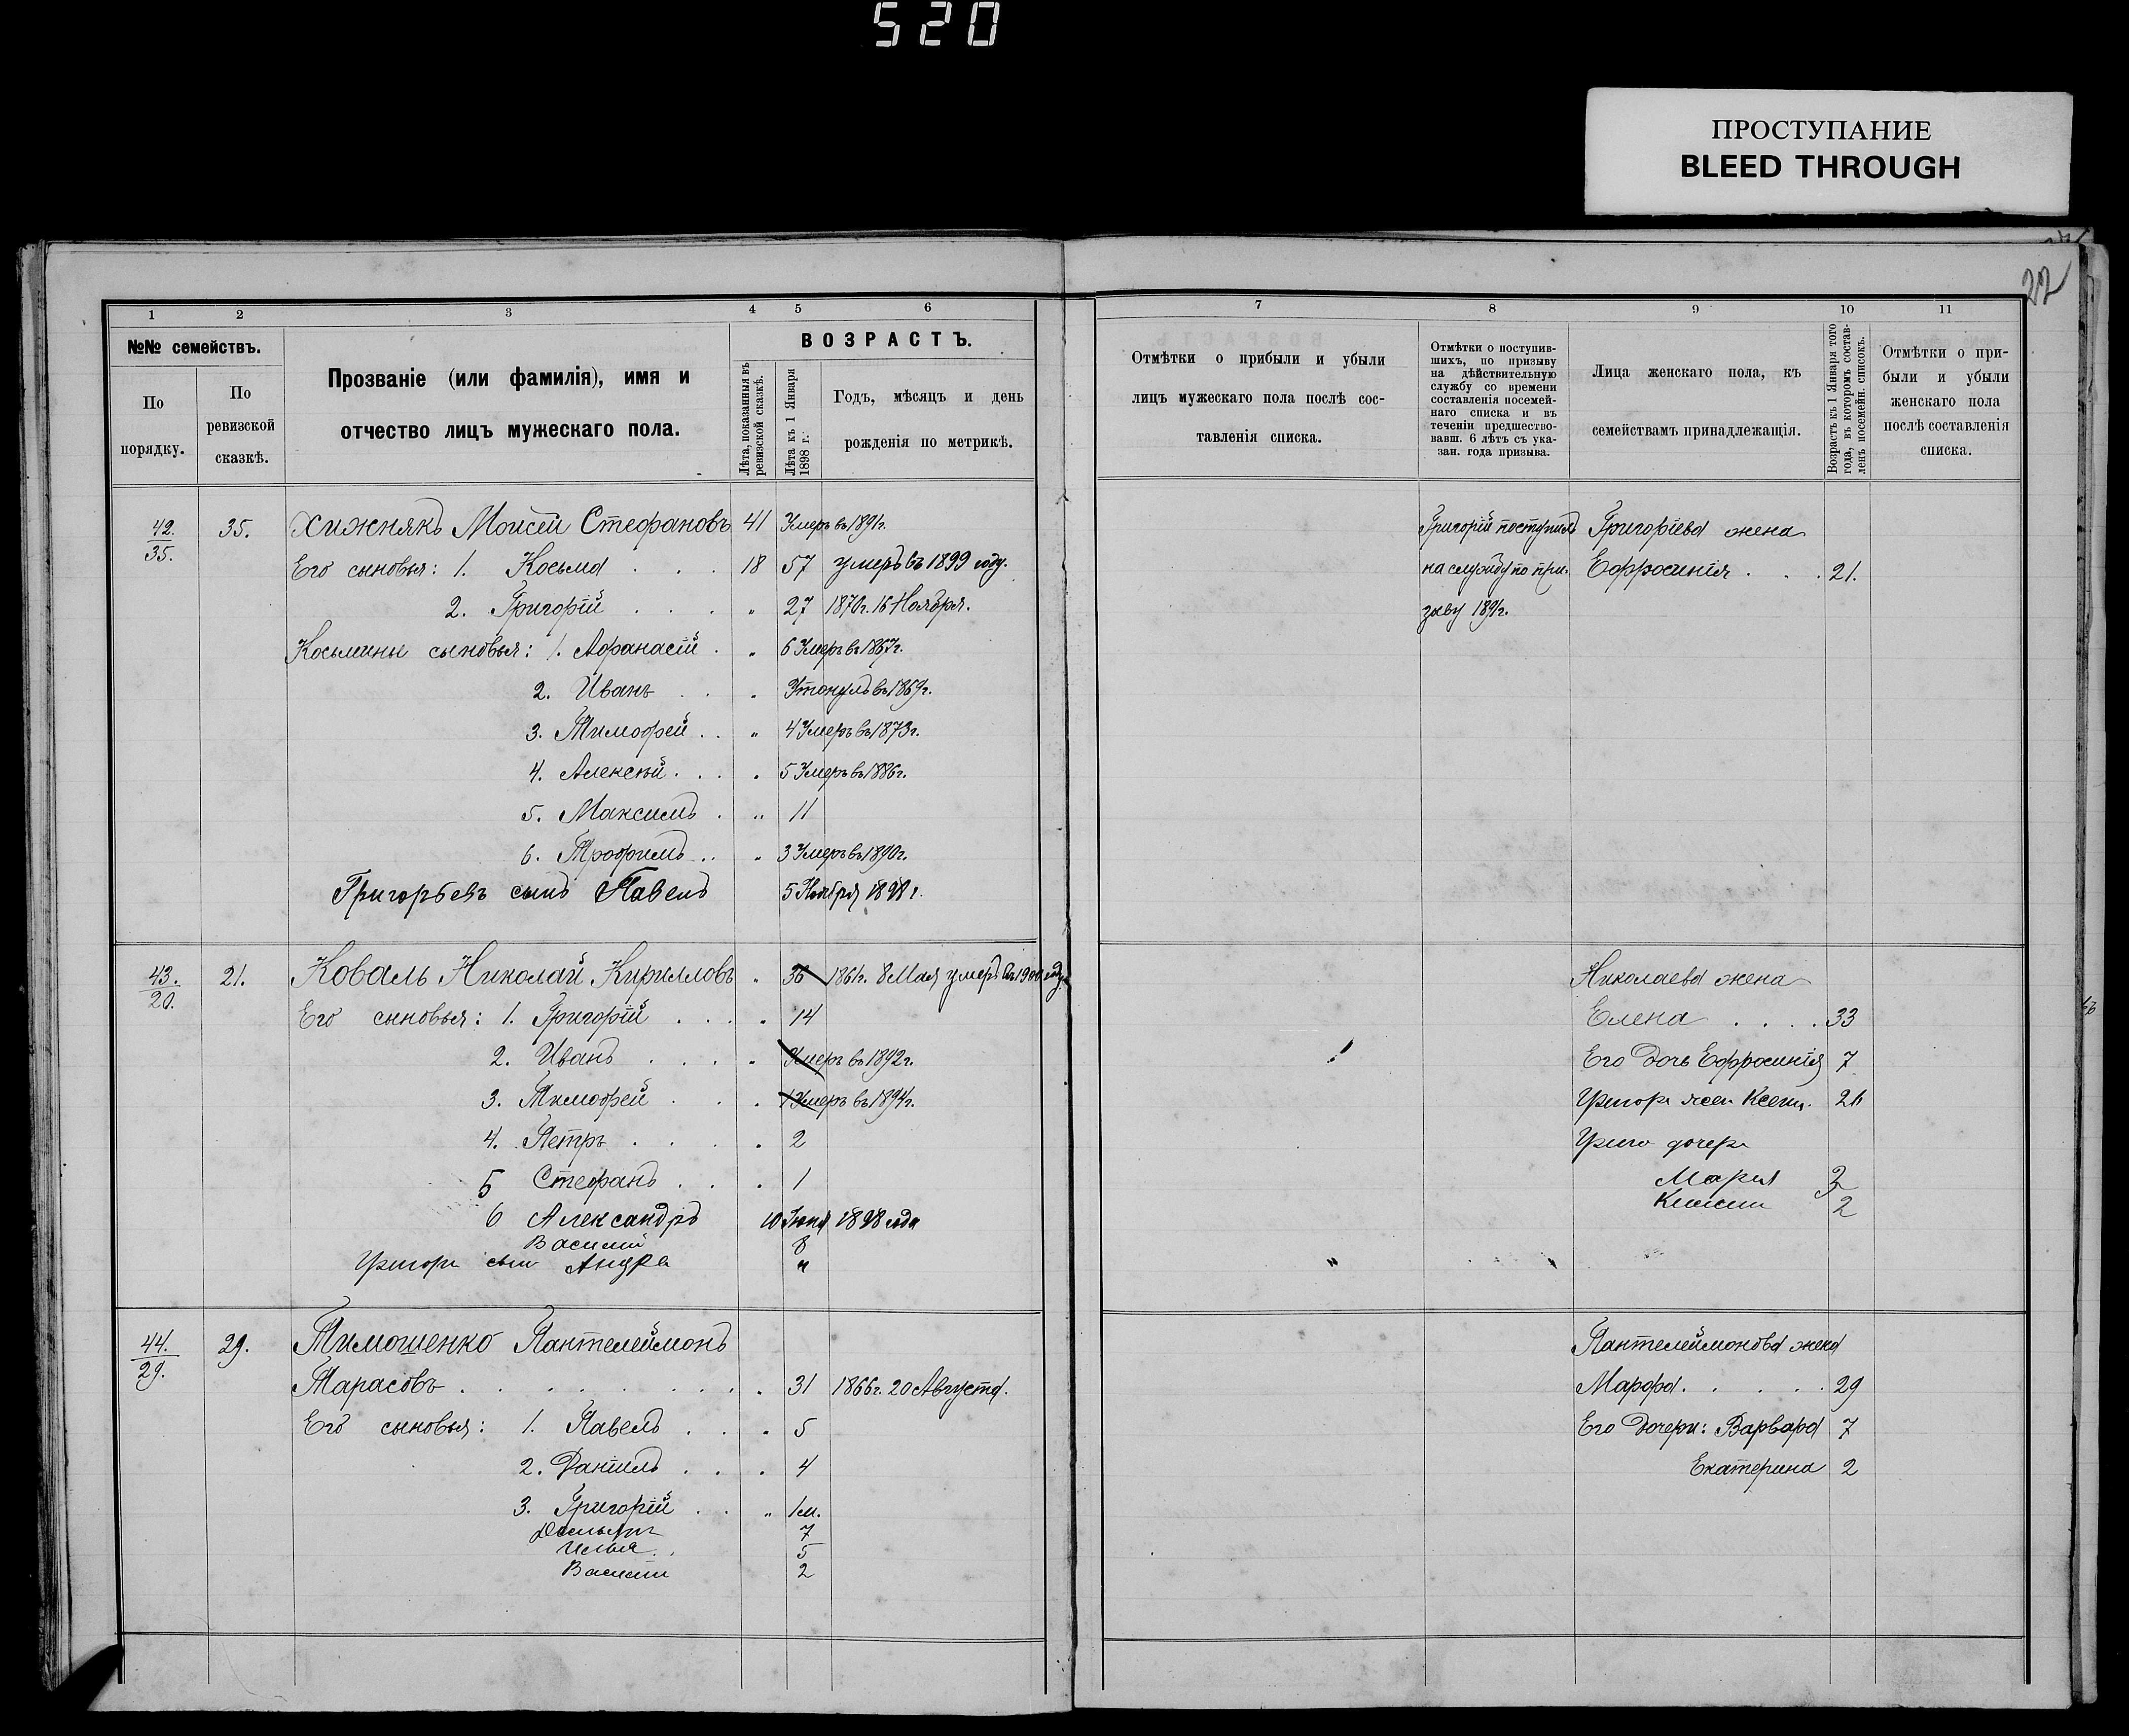 520
ПРОСТУПАНИЕ
BLEED THROUGH
22
1 2 3 4 5 6
№№ семействъ.
По порядку.
По ревизской сказкѣ.
Прозваніе (или фамилія), имя и
отчество лицъ мужескаго пола.
ВОЗРАСТЪ.
Лѣта, показанныя въ ревизской сказкѣ.
Лѣта къ 1 Января 1898 г.
Годъ, мѣсяцъ и день
рожденія по метрикѣ.
42./35. 35. Хижнякъ Моисей Стефановъ 41 Умеръ въ 1891г.
Его сыновья: 1. Косьма . . . 18 57 умеръ въ 1899 году.
2. Григорій . . . " 27 1870г. 16 Ноября.
Косьмины сыновья: 1. Афанасій . " 6 Умеръ въ 1867г.
2. Иванъ . . " Утонулъ въ 1869г.
3. Тимофей . . " 4 Умеръ въ 1873г.
4. Алексѣй . . . " 5 Умеръ въ 1886г.
5. Максимъ . " 11
6. Трофимъ . . " 3 Умеръ въ 1890г.
Григорьевъ сынъ Павелъ 5 Ноября 1898 г.
43./20. 21. Коваль Николай Кирилловъ " 36 1861г. 8 Мая умеръ въ 1900 году
Его сыновья: 1. Григорій . . . . 14
2. Иванъ . . . " Умеръ въ 1892г.
3. Тимофей . . . 1 Умеръ въ 1894г.
4. Петръ . . . . 2
5 Стефанъ . . . 1
6 Александръ 10 Іюня 1898 года
Василий 8
Григори сын Андре
44./29. 29. Тимошенко Пантелеймонъ
Тарасовъ . . . . . . . . 31 1866г. 20 Августа.
Его сыновья: 1. Павелъ . . . 5
2. Даніилъ . . . 4
3. Григорій . . " 1м.
7
Илья . . 5
Василий 2
7 8 9 10 11
Отмѣтки о прибыли и убыли
лицъ мужескаго пола послѣ сос-
тавленія списка.
Отмѣтки о поступив-
шихъ, по призыву
на дѣйствительную
службу со времени
составленія посемей-
наго списка и въ
теченіи предшество-
вавш. 6 лѣтъ съ ука-
зан. года призыва.
Лица женскаго пола, къ
семействамъ принадлежащія.
Возрастъ къ 1 Января того
года, въ которомъ состав-
ленъ посемейн. списокъ.
Отмѣтки о при-
были и убыли
женскаго пола
послѣ составленія
списка.
Григорій поступилъ Григоріева жена
на службу по при- Ефросинія . . . 21.
зыву 1891г.
Николаева жена
Елена . . . . 33
Его дочь Ефросинія 7
Григори жен Ксени. 26
Григо дочери
Мария 3
2
Пантелеймонова жена
Марфа. . . . . 29
Его дочери: Варвара 7
Екатерина 2